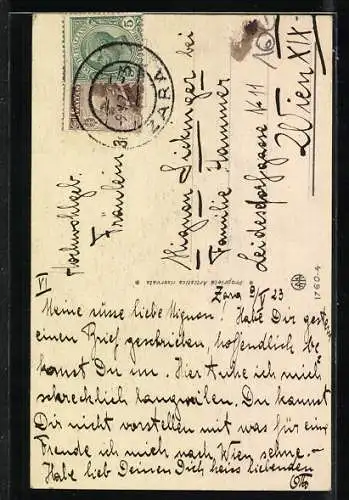 ZARA
Hochwohlgeb.
Fräulein
Mignon Sickinger bei
Familie Hammer
Leidesdorfgasse N 11
Wien XIX.
16
Proprietà Artistica riservata
1760-4
VI
Zara 9/V 23
Meine süsse liebe Mignon! Habe Dir gestern
einen Brief geschrieben, hoffendlich be
komst Du ihn. Hier tuhe ich mich
schrecklich langweilen. Du kannst
Dir nicht vorstellen mit was für eine
Freude ich mich nach Wien sehne.-
Habe lieb Deinen Dich heiss liebenden
Otto